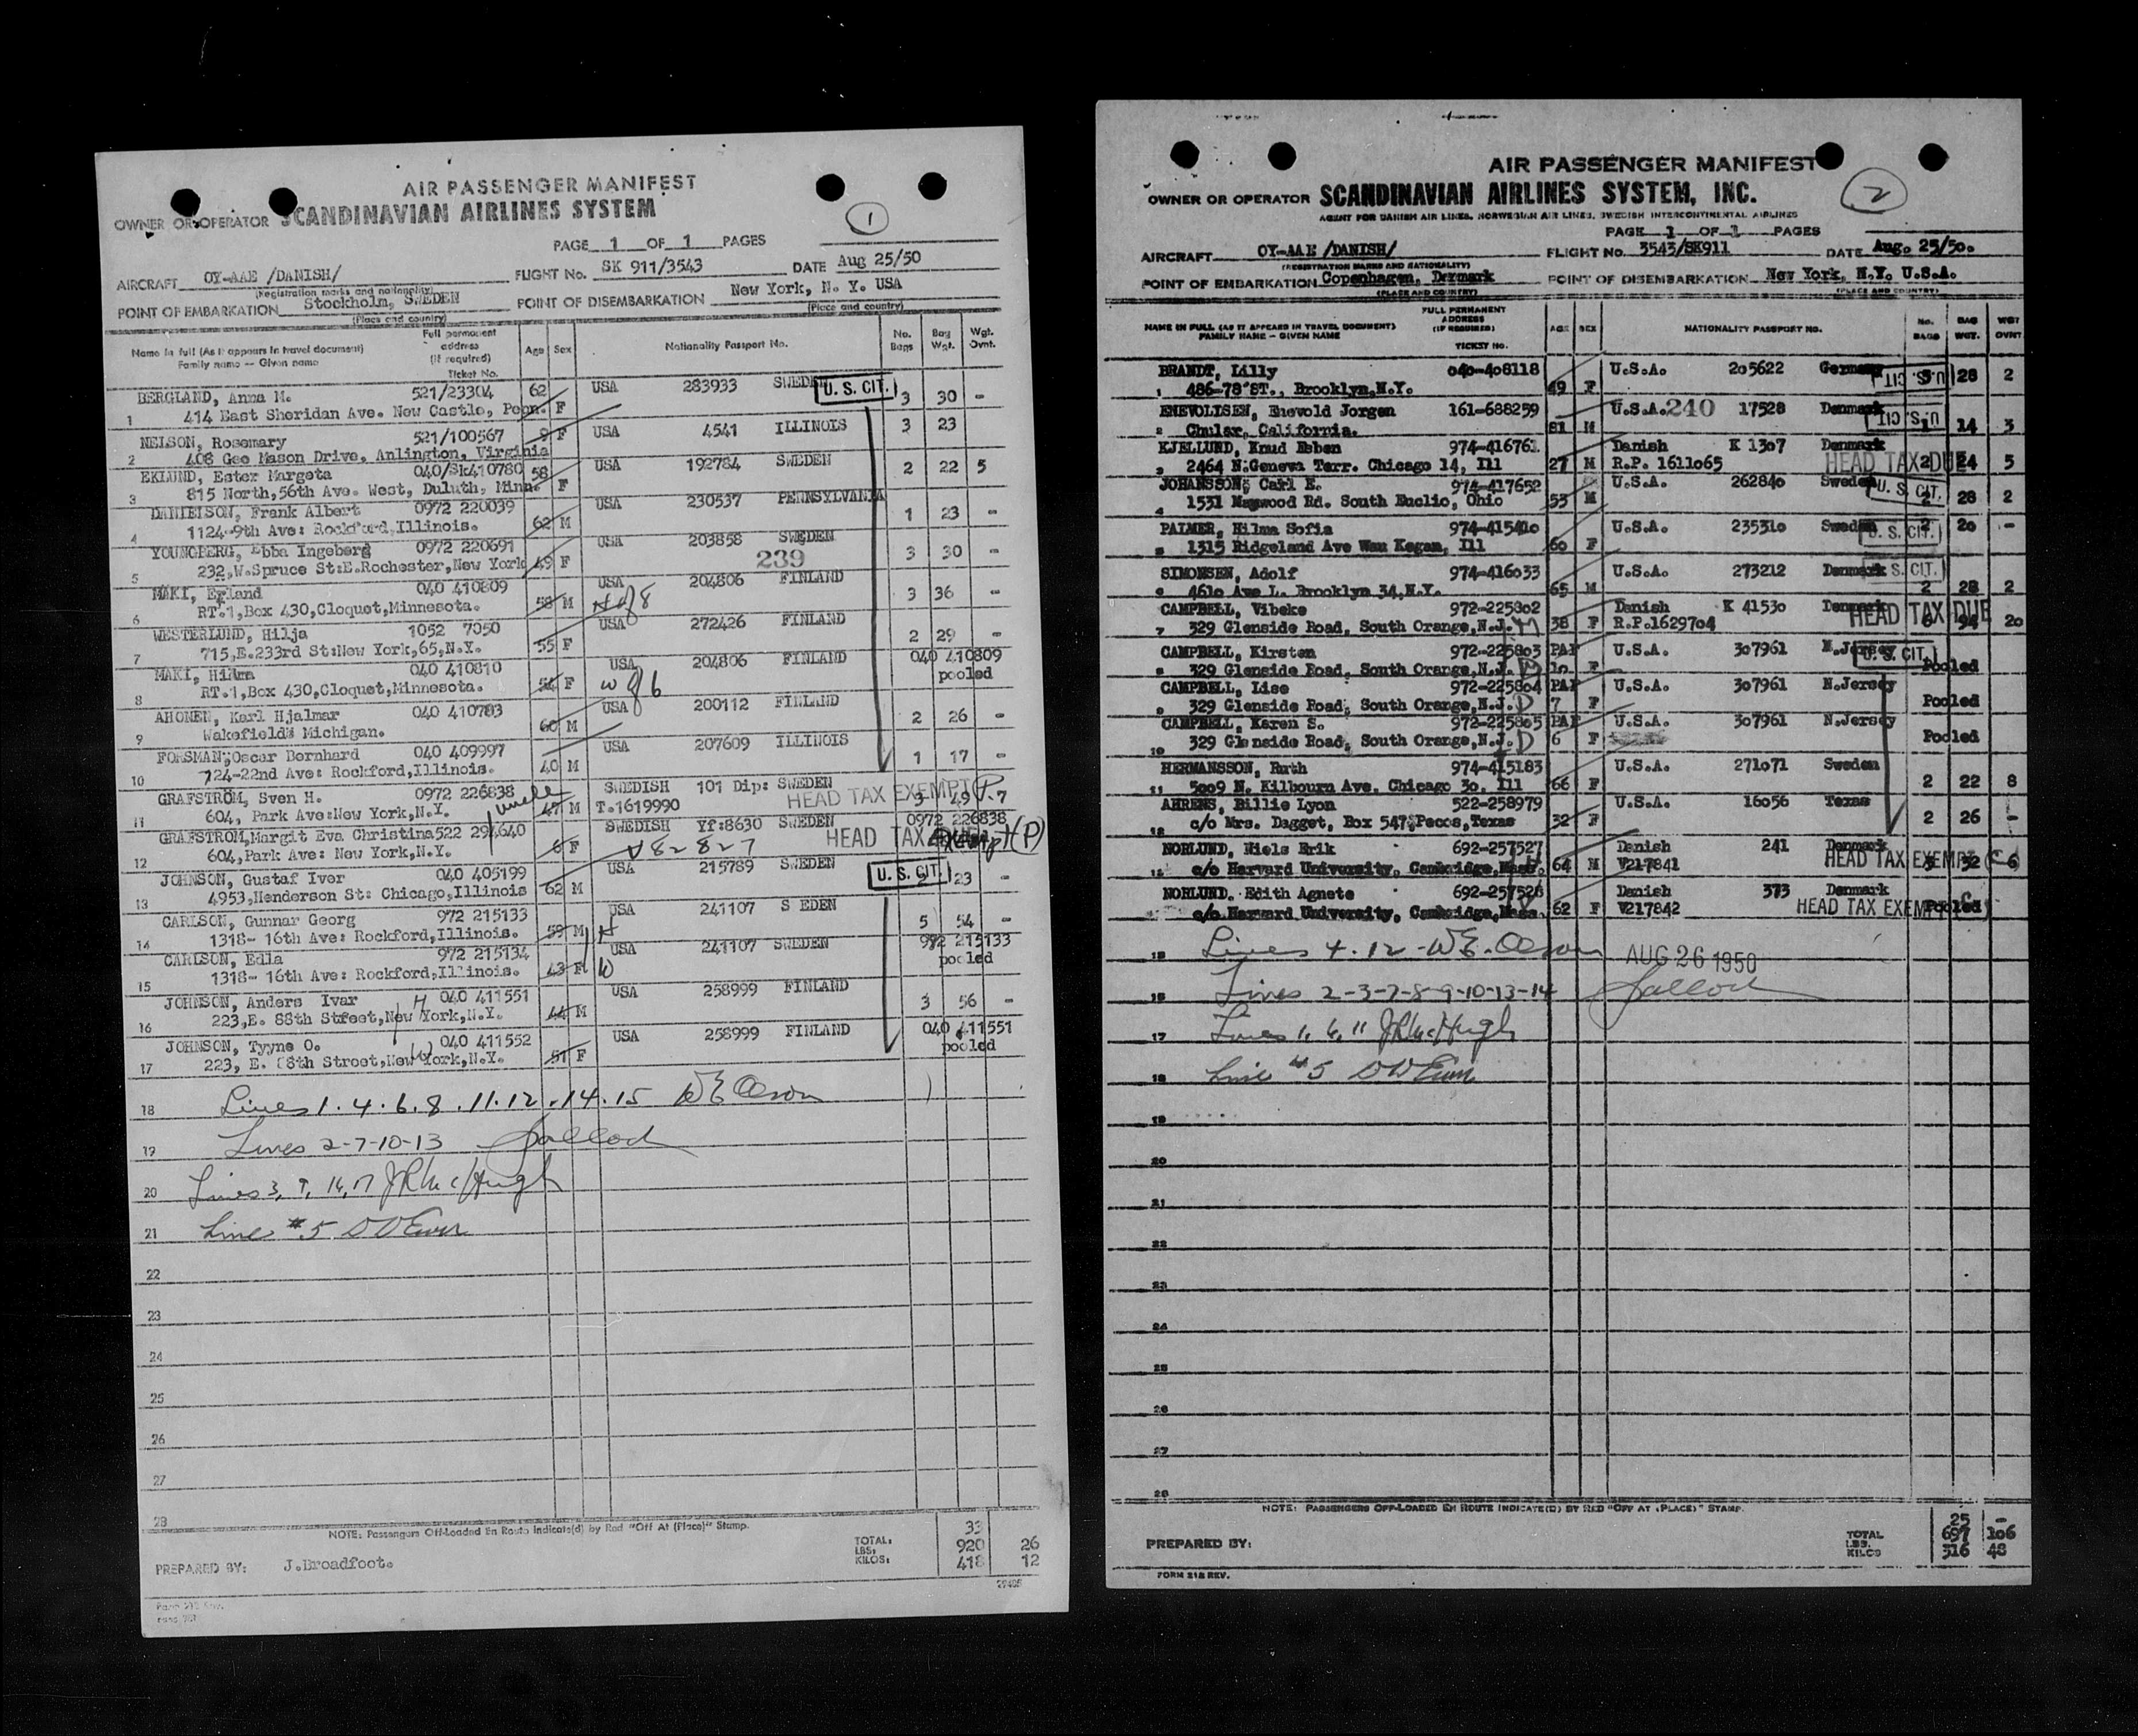 AIR PASSENGER MANIFEST
OWNER OR OPERATOR SCANDINAVIAN AIRLINES SYSTEM
1
PAGE 1 OF 1 PAGES
AIRCRAFT OY-AAE /DANISH/ FLIGHT No. SK 911/3543 DATE Aug 25/50
(Registration marks and nationality)
POINT OF EMBARKATION Stockholm, SWEDEN POINT OF DISEMBARKATION New York, N. Y. USA
(Place and country) (Place and country)
Name in full (As it appears in travel document) Family name — Given name
Full permanent address (if required) Ticket No.
Age Sex Nationality Passport No. No. Bags Bag Wgt. Wgt. Ovnt.
BERGLAND, Anna M. 521/23304 62 USA 283933 SWEDEN U. S. CIT. 3 30 -
1 414 East Sheridan Ave. New Castle, Penn. F
NELSON, Rosemary 521/100567 9 F USA 4541 ILLINOIS 3 23
2 408 Geo Mason Drive, Anlington, Virginia
EKLUND, Ester Margeta 040/Sk410780 58 USA 192784 SWEDEN 2 22 5
3 815 North,56th Ave. West, Duluth, Minn. F
DANIELSON, Frank Albert 0972 220039 USA 230537 PENNSYLVANIA 1 23 -
4 1124-9th Ave: Rockford,Illinois. 62 M
YOUNGBERG, Ebba Ingeberg 0972 220691 USA 203858 SWEDEN 3 30 -
5 232,W.Spruce St:E.Rochester,New York 49 F 239
MAKI, Erland 040 410809 USA 204806 FINLAND 3 36 -
6 RT.1,Box 430,Cloquet,Minnesota. 58 M H of 8
WESTERLUND, Hilja 1052 7050 USA 272426 FINLAND 2 29 -
7 715,E.233rd St:New York,65,N.Y. 55 F
MAKI, Hilma 040 410810 USA 204806 FINLAND 040 410809 pooled
8 RT.1,Box 430,Cloquet,Minnesota. 54 F W of 6
AHONEN, Karl Hjalmar 040 410783 USA 200112 FINLAND 2 26 -
9 Wakefield Michigan. 60 M
FORSMAN;Oscar Bernhard 040 409997 USA 207609 ILLINOIS 1 17 -
10 724-22nd Ave: Rockford,Illinois. 40 M
GRAFSTRÖM, Sven H. 0972 226838 uncle SWEDISH 101 Dip: SWEDEN 3 49 7
11 604, Park Ave:New York,N.Y. 47 M T.1619990 HEAD TAX EXEMPT (P)
GRAFSTROM,Margit Eva Christina 522 294640 SWEDISH Yf:8630 SWEDEN 0972 226838
12 604,Park Ave: New York,N.Y. 6 F V82827 HEAD TAX Exempt (P)
JOHNSON, Gustaf Iver 040 405199 USA 215789 SWEDEN U. S. CIT. 23 -
13 4953,Henderson St: Chicago,Illinois 62 M
CARLSON, Gunnar Georg 972 215133 USA 241107 S EDEN 5 54 -
14 1318- 16th Ave: Rockford,Illinois. 59 M H
CARLSON, Edla 972 215134 USA 241107 SWEDEN 972 215133 pooled
15 1318- 16th Ave: Rockford,Illinois. 43 F W
JOHNSON, Anders Ivar H 040 411551 USA 258999 FINLAND 3 56 -
16 223,E. 88th Street,New York,N.Y. 44 M
JOHNSON, Tyyne O. 040 411552 USA 258999 FINLAND 040 411551 pooled
17 223, E. 88th Street,New York,N.Y. W 51 F
18 Lines 1.4.6.8.11.12.14.15 WE Olson
19 Lines 2-7-10-13
20 Lines 3, 9, 16, 17 JR McHugh
21 Line #5
22
23
24
25
26
27
28
NOTE: Passengers Off-Loaded En Route Indicate(d) by Red "Off At (Place)" Stamp.
TOTAL: 33
LBS: 920 26
KILOS: 418 12
PREPARED BY: J.Broadfoot.
AIR PASSENGER MANIFEST
OWNER OR OPERATOR SCANDINAVIAN AIRLINES SYSTEM, INC.
2
AGENT FOR DANISH AIR LINES, NORWEGIAN AIR LINES, SWEDISH INTERCONTINENTAL AIRLINES
PAGE 1 OF 1 PAGES
AIRCRAFT OY-AAE /DANISH/ FLIGHT NO. 3543/SK911 DATE Aug. 25/50.
(REGISTRATION MARKS AND NATIONALITY)
POINT OF EMBARKATION Copenhagen, Denmark POINT OF DISEMBARKATION New York, N.Y. U.S.A.
(PLACE AND COUNTRY) (PLACE AND COUNTRY)
NAME IN FULL (AS IT APPEARS IN TRAVEL DOCUMENT) FAMILY NAME — GIVEN NAME
FULL PERMANENT ADDRESS (IF REQUIRED) TICKET NO.
AGE SEX NATIONALITY PASSPORT NO. No. BAGS BAG WGT. WGT OVNT
BRANDT, Lilly 040-408118 U.S.A. 205622 Germany U.S. CIT 28 2
1 486-78'ST., Brooklyn,N.Y. 49 F
ENEVOLDSEN, Enevold Jorgen 161-688259 U.S.A. 240 17528 Denmark U.S. CIT 1 14 3
2 Chular, California. 81 M
KJELLUND, Knud Esben 974-416761 Danish K 1307 Denmark
3 2464 N.Geneva Terr. Chicago 14, Ill 27 M R.P. 1611065 HEAD TAX DUE 2 24 5
JOHANSSON, Carl E. 974-417652 U.S.A. 262840 Sweden U. S. CIT.
4 1531 Magwood Rd. South Euclic, Ohio 53 M 2 28 2
PALMER, Hilma Sofia 974-415410 U.S.A. 235310 Sweden U. S. CIT. 2 20 -
5 1315 Ridgeland Ave Wau Kegan, Ill 60 F
SIMONSEN, Adolf 974-416033 U.S.A. 273212 Denmark U. S. CIT.
6 4610 Ave L. Brooklyn 34,N.Y. 65 M 2 28 2
CAMPBELL, Vibeke 972-225802 Danish K 41530 Denmark
7 329 Glenside Road, South Orange,N.J. M 38 F R.P.1629704 HEAD TAX DUE 6 94 20
CAMPBELL, Kirsten 972-225803 PAP U.S.A. 307961 N.Jersey U. S. CIT.
8 329 Glenside Road, South Orange,N.J. D 10 F Pooled
CAMPBELL, Lise 972-225804 PAP U.S.A. 307961 N.Jersey
9 329 Glenside Road, South Orange,N.J. D 7 F Pooled
CAMPBELL, Karen S. 972-225805 PAP U.S.A. 307961 N.Jersey
10 329 Glenside Road, South Orange,N.J. D 6 F Pooled
HERMANSSON, Ruth 974-415183 U.S.A. 271071 Sweden
11 5009 N. Kilbourn Ave. Chicago 30, Ill 66 F 2 22 8
AHRENS, Billie Lyon 522-258979 U.S.A. 16056 Texas
12 c/o Mrs. Dagget, Box 547,Pecos,Texas 32 F 2 26 -
NORLUND, Niels Erik 692-257527 Danish 241 Denmark
13 c/o Harvard University, Cambridge,Mass. 64 M V217841 HEAD TAX EXEMPT 32 6
NORLUND. Edith Agnete 692-257528 Danish 373 Denmark
c/o Harvard University, Cambridge,Mass. 62 F V217842 HEAD TAX EXEMPT Pooled
15 Lines 4.12 - WE. Olson AUG 26 1950
16 Lines 2-3-7-8-9-10-13-14
17 Lines 1, 6, 11 JR McHugh
18 Line #5
19
20
21
22
23
24
25
26
27
28
NOTE: PASSENGERS OFF-LOADED EN ROUTE INDICATE(D) BY RED "OFF AT (PLACE)" STAMP.
TOTAL 25 -
LBS. 697 106
KILOS 316 48
PREPARED BY:
FORM 218 REV.